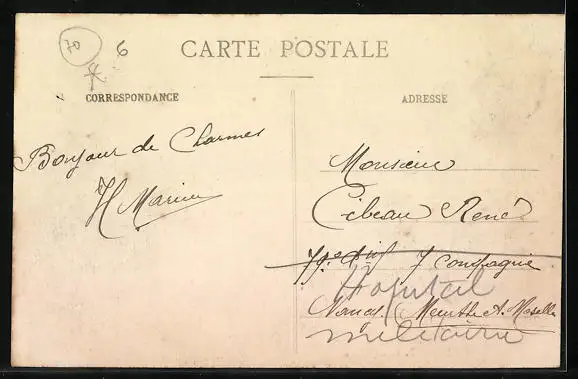 70
6
CARTE POSTALE
CORRESPONDANCE
Bonjour de Charmes
H Marion
ADRESSE
Monsieur
Cibeau René
79e d'inf 7 Compagnie
Hopital
Nancy (Meurthe M. Moselle
militaire